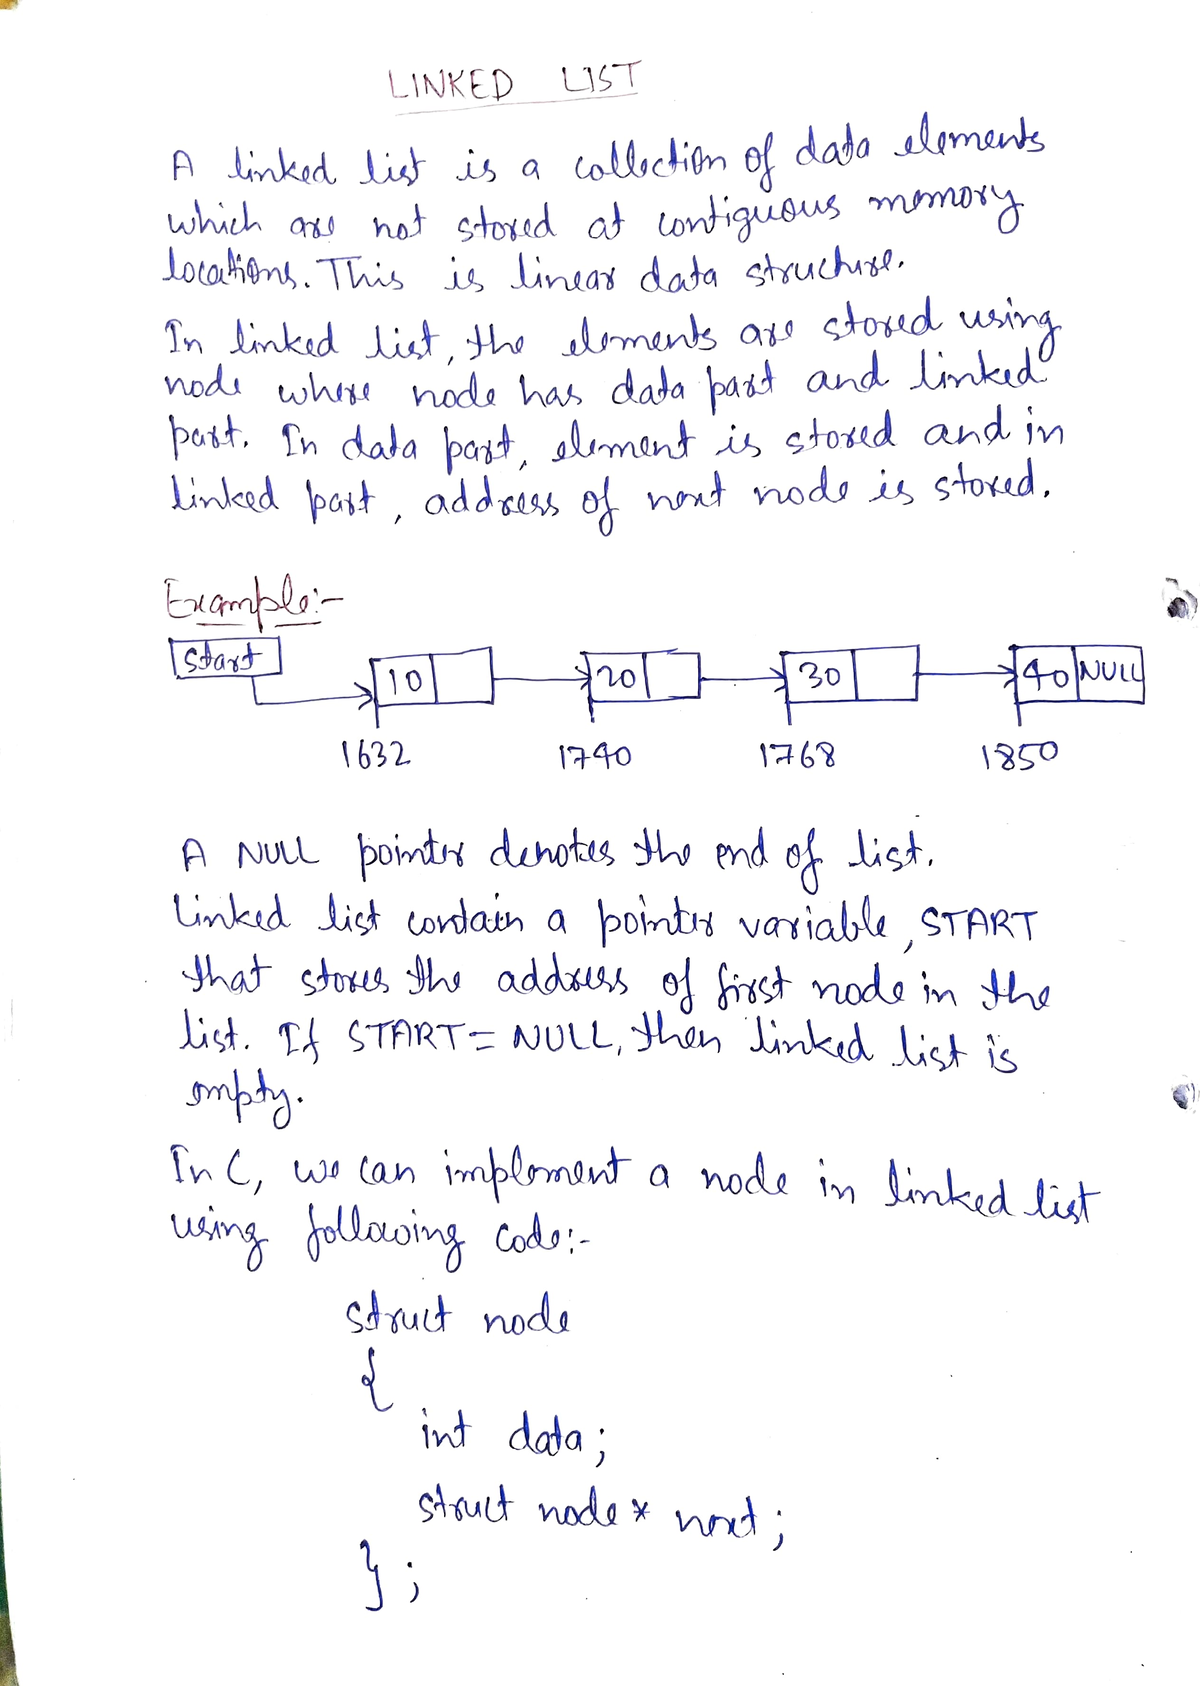 LINKED LIST
A linked list is a collection of data elements
which are not stored at contiguous memory
locations. This is linear data structure.
In linked list, the elements are stored using
node where node has data part and linked
part. In data part, element is stored and in
linked part, address of next node is stored.
Example:-
Start 10 20 30 40 NULL
1632 1740 1768 1850
A NULL pointer denotes the end of list.
Linked list contain a pointer variable, START
that stores the address of first node in the
list. If START = NULL, then linked list is
empty.
In C, we can implement a node in linked list
using following code:-
struct node
{
int data;
struct node * next;
};